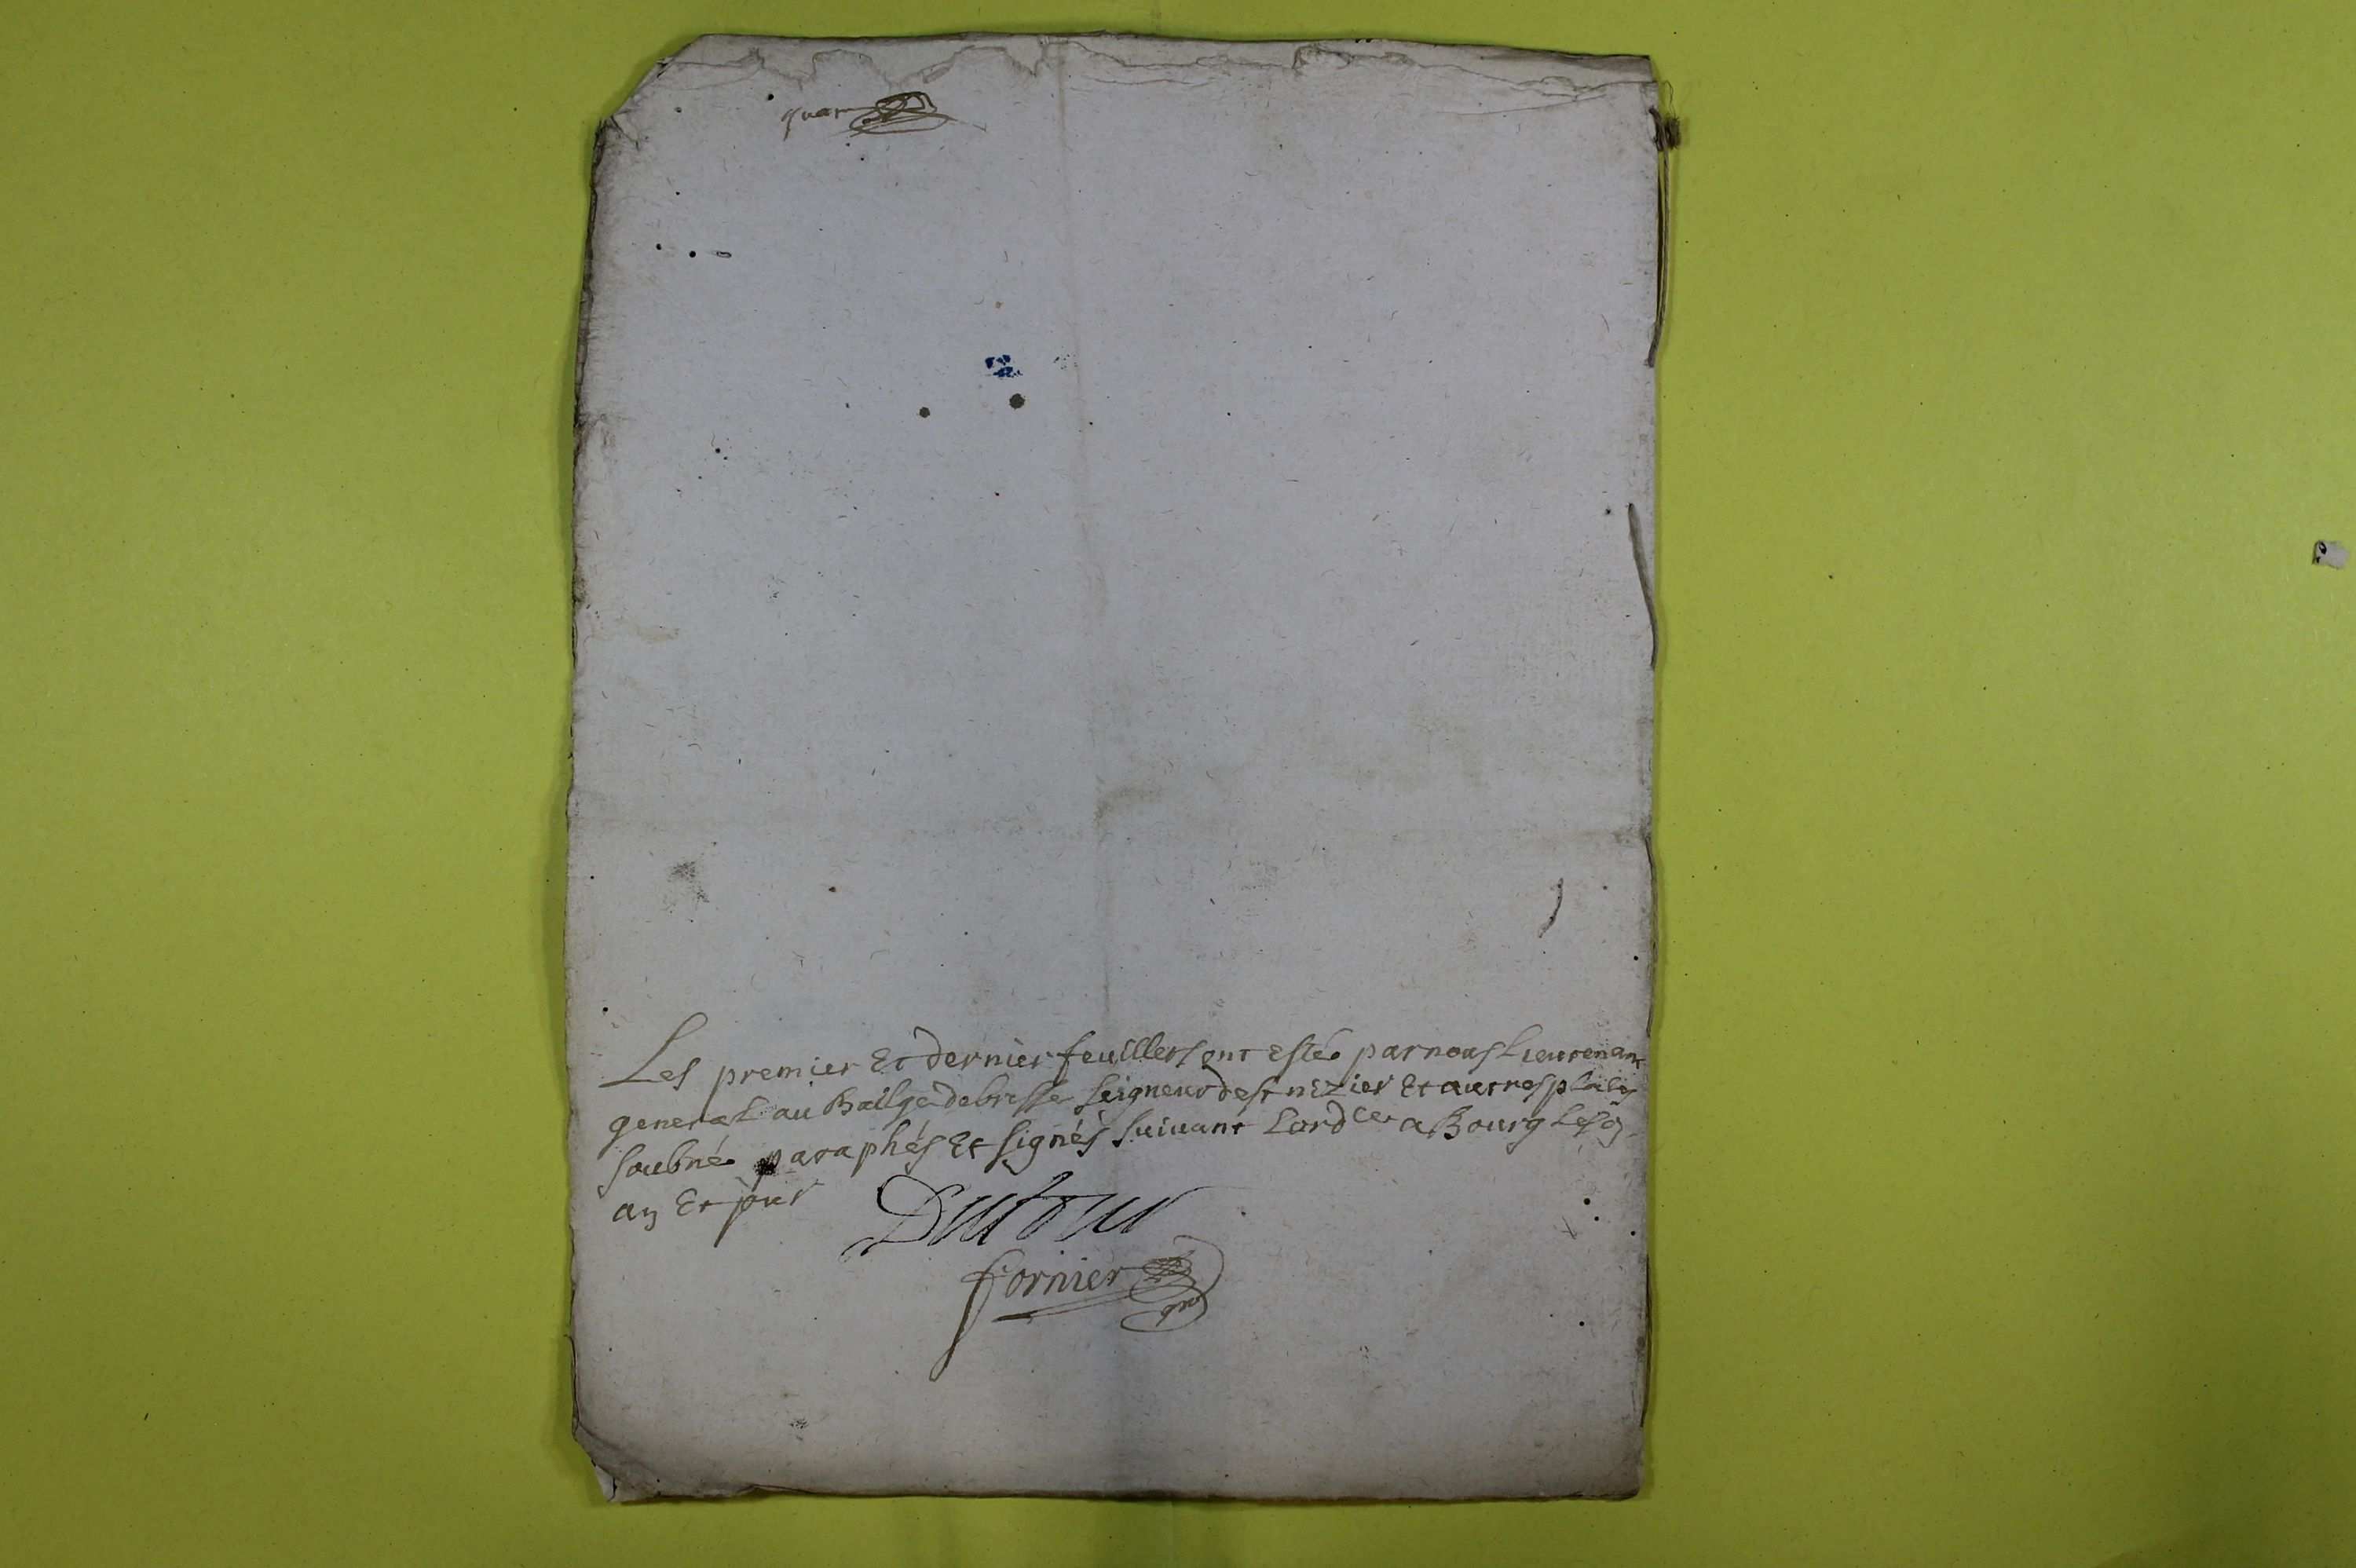 Les premier Et dernier feuillets ont Estés par nous Lieutenant
general au Bailge de bresse seigneur de st nizier Et autres places
soubné paraphés Et signés suivant Lordce a Bourg Les
an Et jour
Dutour
fornier